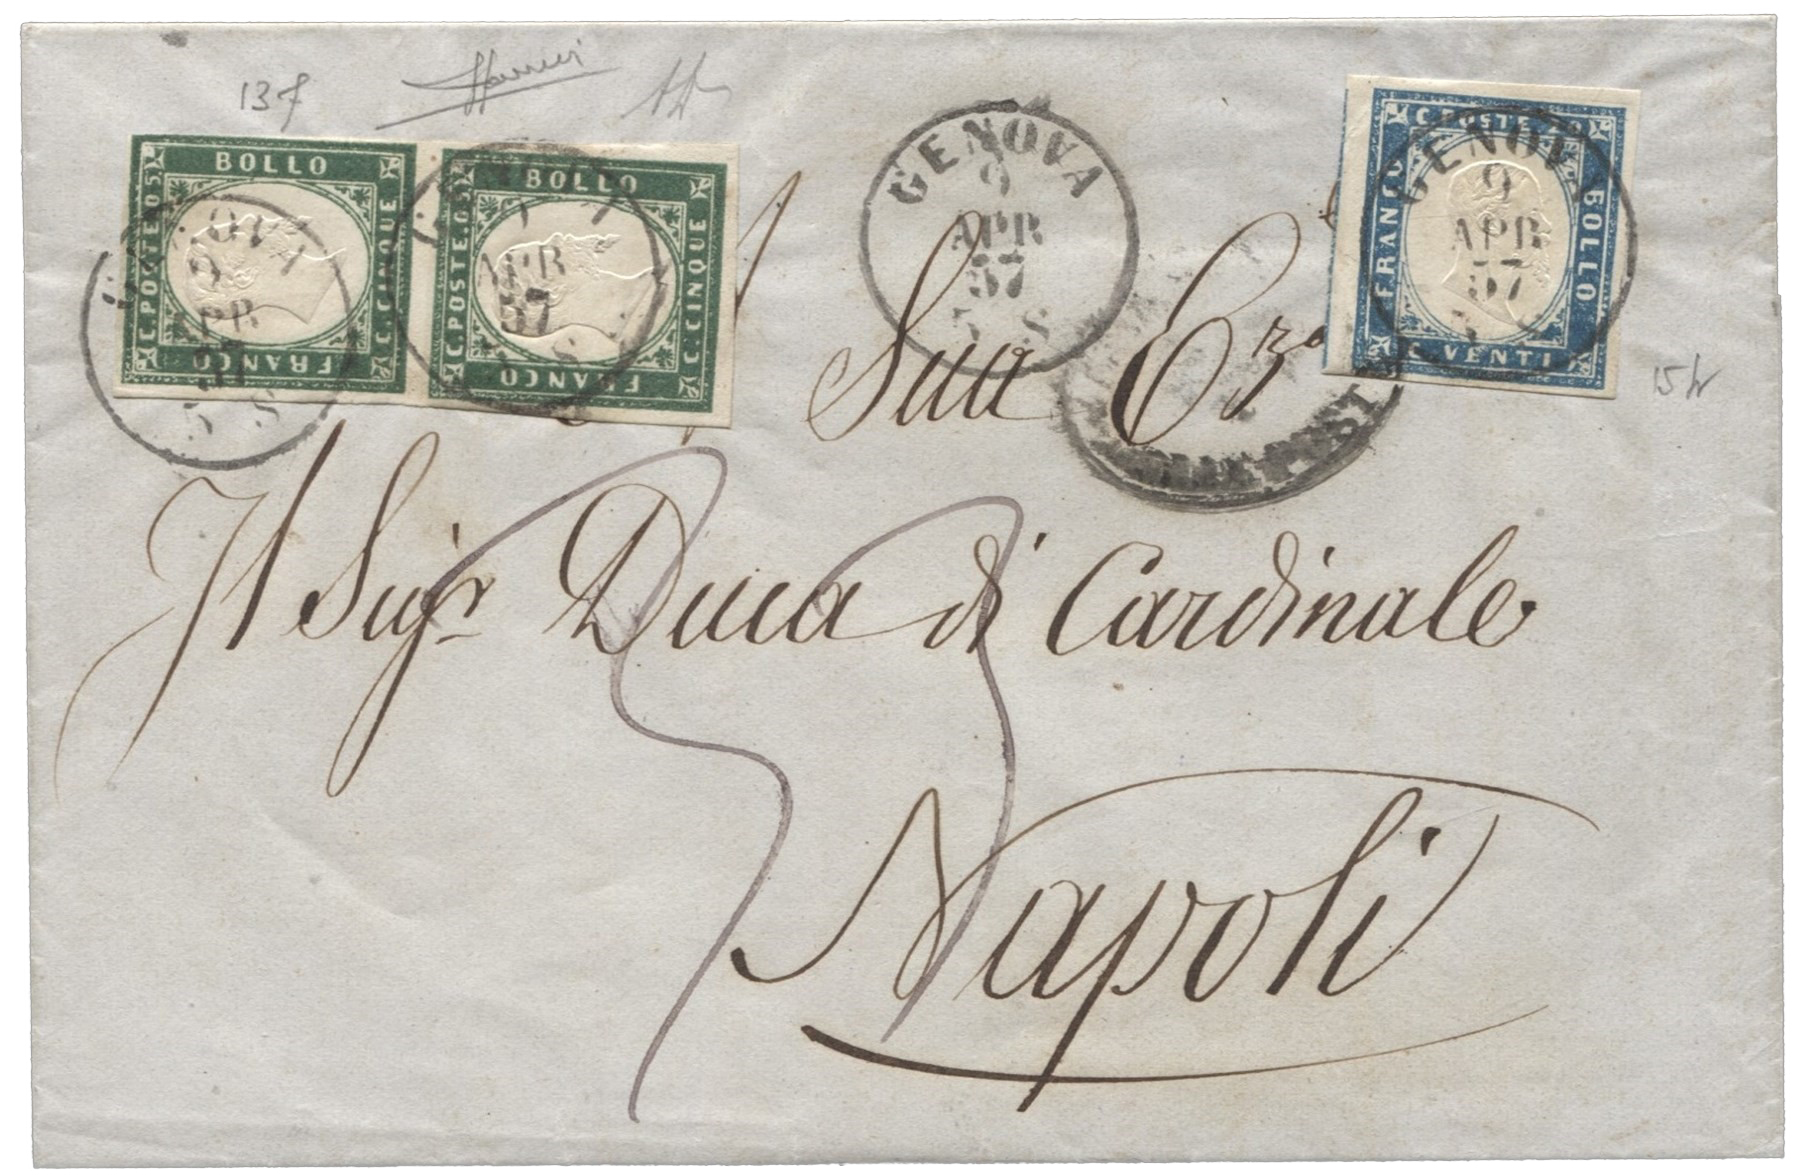 13f
BOLLO
C. POSTE. 05.
C. CINQUE
FRANCO
BOLLO
C. POSTE. 05.
C. CINQUE
FRANCO
GENOVA
9
APR
57
5 S
C. POSTE. 20
FRANCO
BOLLO
C. VENTI
GENOVA
9
APR
57
15h
APR
57
A Sua Eza
Il Sigr Duca di Cardinale
Napoli